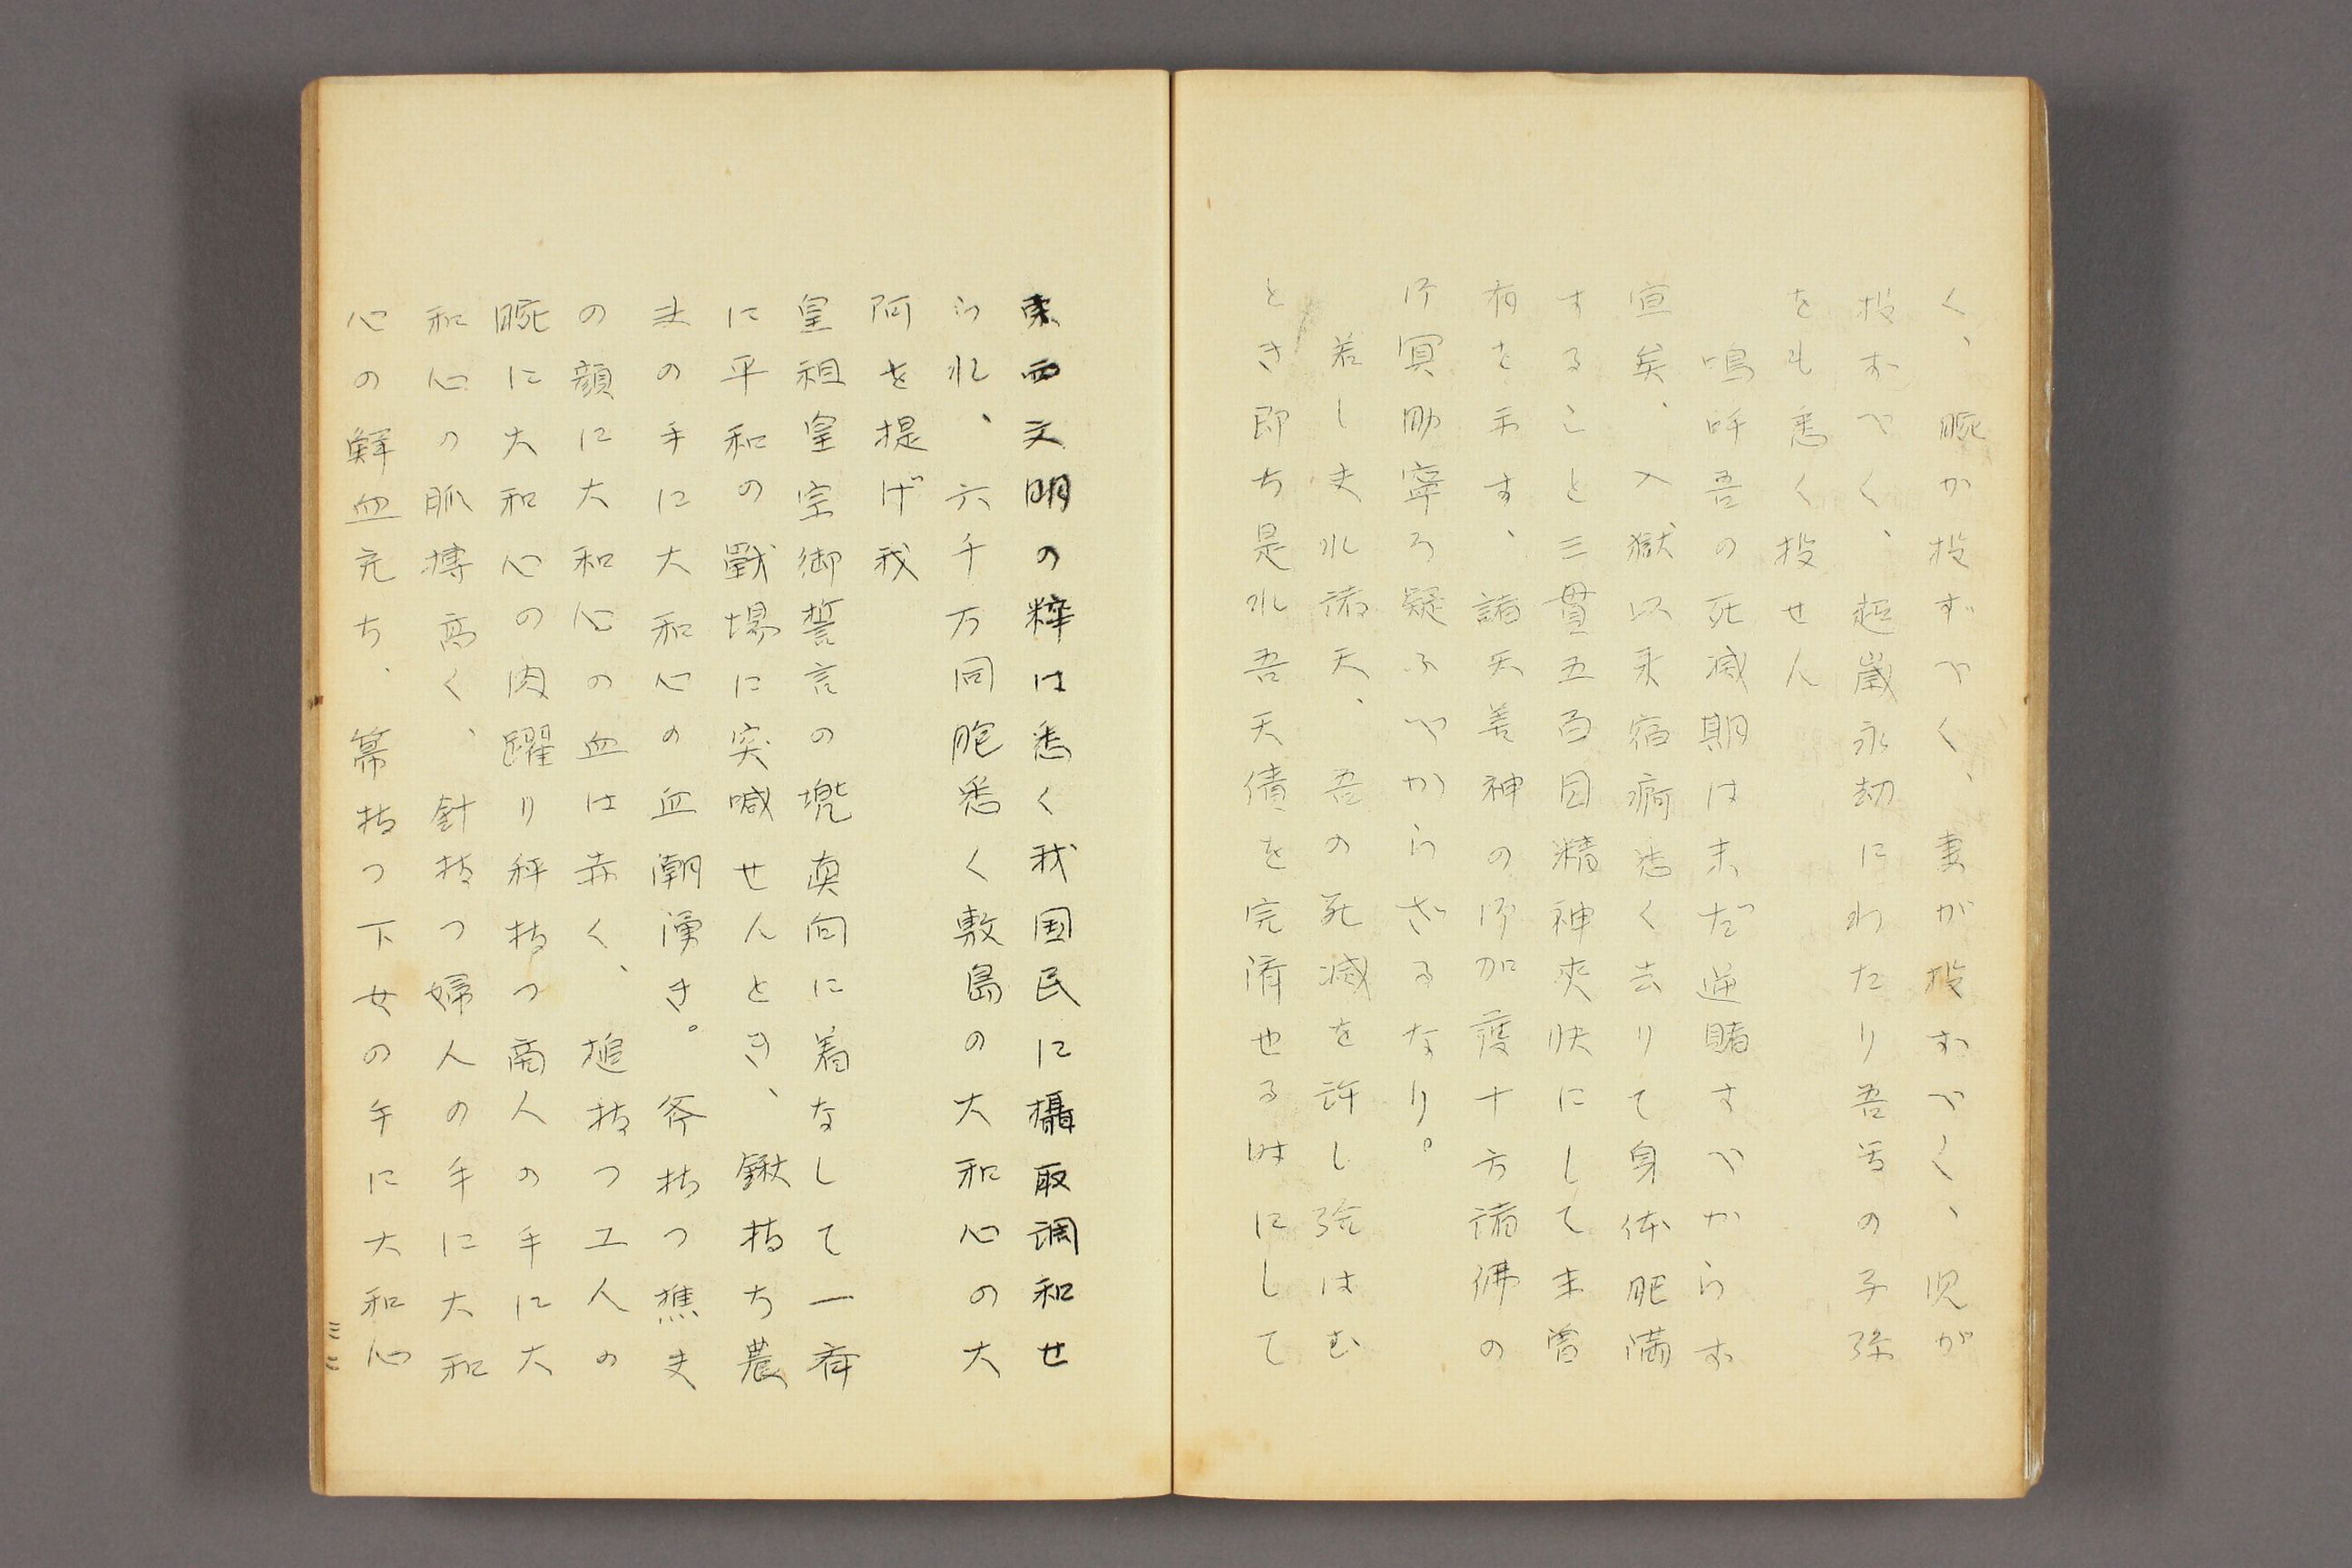 く、腕か投ずべく、妻が投すべく、児が
投すべく、超歳永劫にわたり吾等の子孫
をも悉く投せん
嗚呼吾の死滅期は未だ逆睹すべからす
宣矣、入獄以来宿痾悉く去りて身体肥満
すること三貫五百目精神爽快にして未曽
有を示す、諸天善神の御加護十方諸佛の
御冥助寧ろ疑ふべからざるなり。
若し夫れ諸天、吾の死滅を許し給はむ
とき即ち是れ吾天債を完済せる時にして
東西文明の粋は悉く我国民に攝取調和せ
られ、六千万同胞悉く敷島の大和心の大
阿を提げ我
皇祖皇宗御誓言の兜真向に着なして一斉
に平和の戰場に突喊せんとき、鍬持ち農
夫の手に大和心の血潮湧き。斧持つ樵夫
の顔に大和心の血は赤く、槌持つ工人の
腕に大和心の肉躍り秤持つ商人の手に大
和心の脈搏高く、針持つ婦人の手に大和
心の鮮血充ち、箒持つ下女の手に大和心
三二